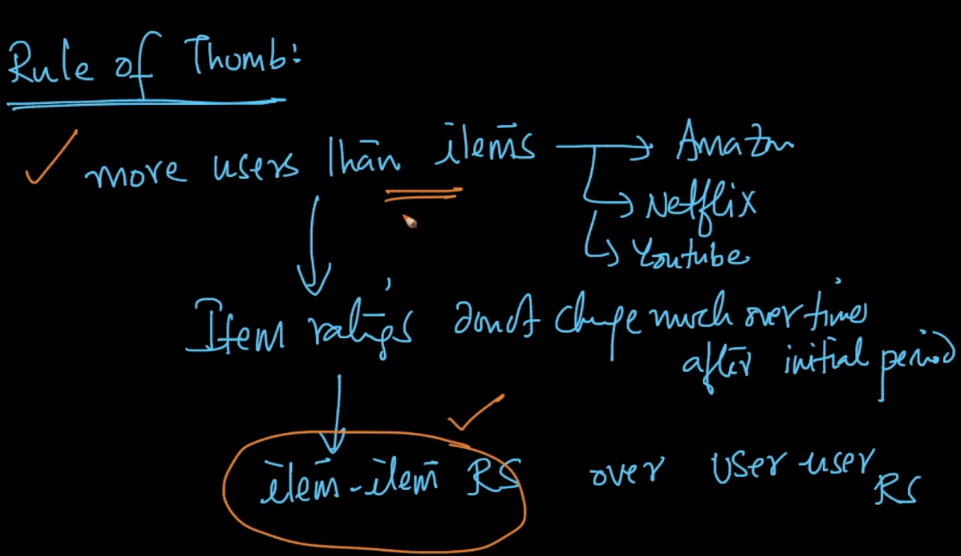 Rule of Thumb:
more users than items → Amazon
→ Netflix
→ Youtube
Item ratings donot change much over time
after initial period
item-item RS over user-user
RS